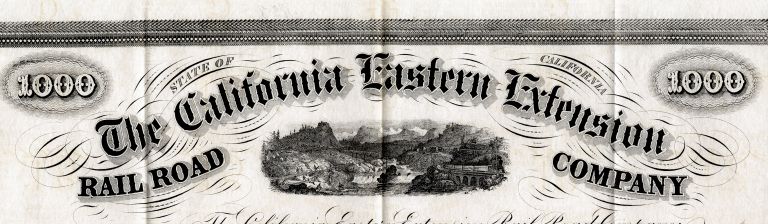 1.000
STATE OF
CALIFORNIA
1.000
The California Eastern Extension
RAIL ROAD
COMPANY
The California Eastern Extension Rail Road Company